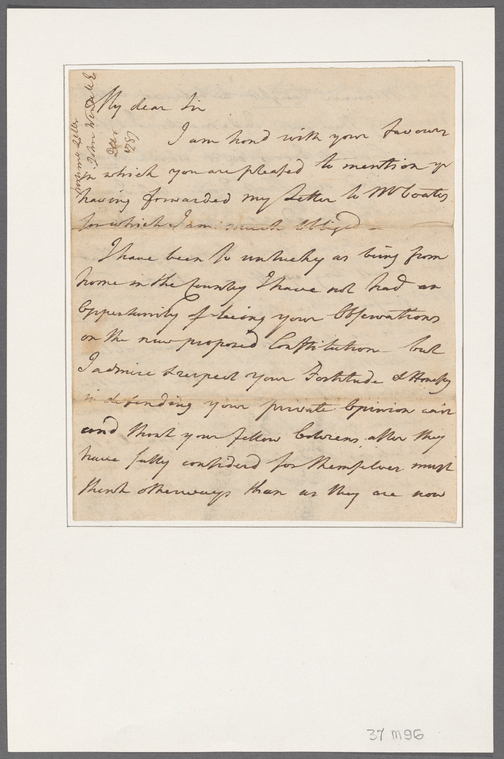 My dear Sir
I am hond with your favour
in which you are pleased to mention yr
having forwarded my Letter to Mr Coates
for which I am much Obliged
I have been so unlucky as being from
home in the Country I have not had an
Opportunity of seeing your Observations
on the new proposed Constitution but
I admire & respect your Fortitude & Honesty
in defending your private Opinion
and think your fellow Citizens after they
have fully considerd for themselves must
think otherways than as they are now
Letter
John
Decr
1787
37 M96